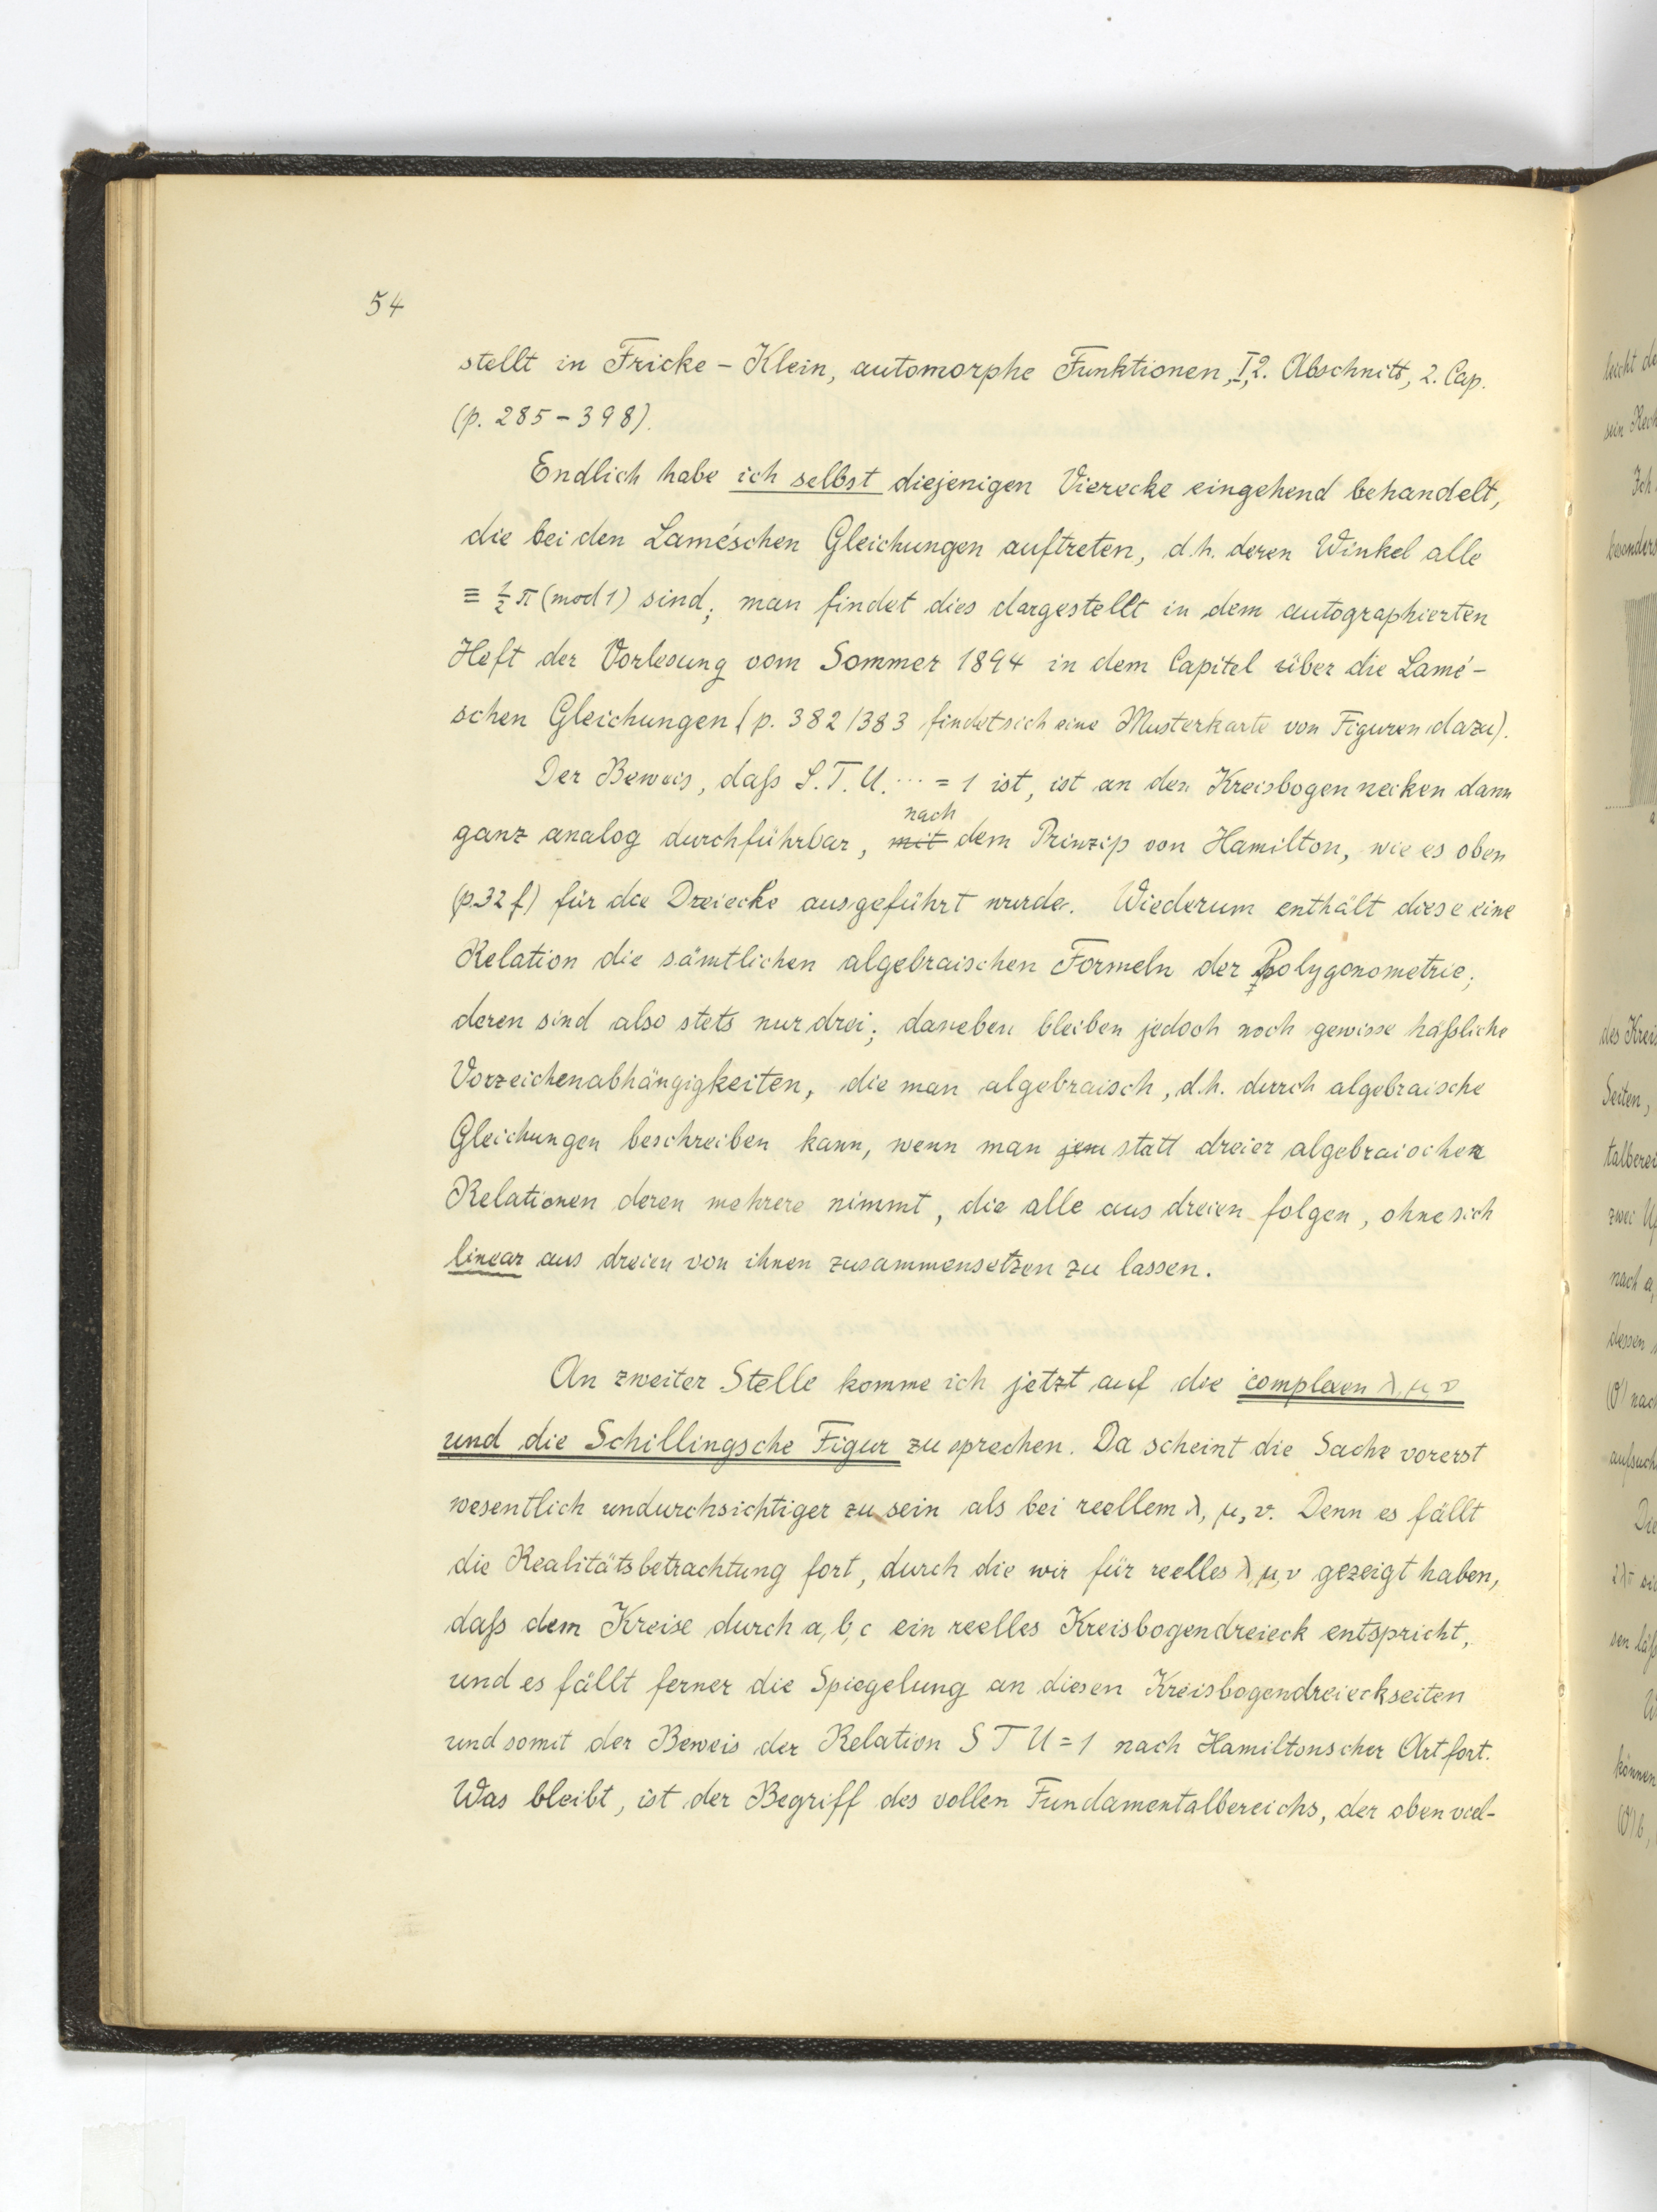 54
stellt in Fricke - Klein, automorphe Funktionen, I, 2. Abschnitt, 2. Cap.
(p. 285 - 398).
Endlich habe ich selbst diejenigen Vierecke eingehend behandelt,
die bei den Laméschen Gleichungen auftreten, d.h. deren Winkel alle
≡ ½ π (mod 1) sind; man findet dies dargestellt in dem autographierten
Heft der Vorlesung vom Sommer 1894 in dem Capitel über die Lamé-
schen Gleichungen (p. 382/383 findet sich eine Musterkarte von Figuren dazu).
Der Beweis, daß S. T. U. ⋯ = 1 ist, ist an den Kreisbogen necken dann
nach
ganz analog durchführbar, mit dem Prinzip von Hamilton, wie es oben
(p. 32 f) für die Dreiecke ausgeführt wurde. Wiederum enthält diese eine
Relation die sämtlichen algebraischen Formeln der Polygonometrie;
deren sind also stets nur drei; daneben bleiben jedoch noch gewisse häßliche
Vorzeichenabhängigkeiten, die man algebraisch, d.h. durch algebraische
Gleichungen beschreiben kann, wenn man jene statt dreier algebraischer
Relationen deren mehrere nimmt, die alle aus dreien folgen, ohne sich
linear aus dreien von ihnen zusammensetzen zu lassen.
An zweiter Stelle komme ich jetzt auf die complexen λ, μ, ν
und die Schillingsche Figur zu sprechen. Da scheint die Sache vorerst
wesentlich undurchsichtiger zu sein als bei reellem λ, μ, ν. Denn es fällt
die Realitätsbetrachtung fort, durch die wir für reelles λ, μ, ν gezeigt haben,
daß dem Kreise durch a, b, c ein reelles Kreisbogendreieck entspricht,
und es fällt ferner die Spiegelung an diesen Kreisbogendreieckseiten
und somit der Beweis der Relation S T U = 1 nach Hamiltonscher Art fort.
Was bleibt, ist der Begriff des vollen Fundamentalbereichs, der oben viel-